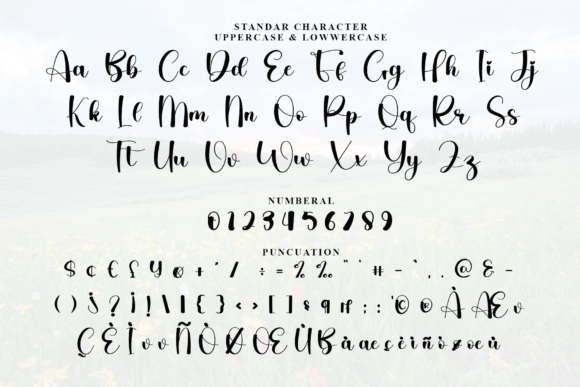 STANDAR CHARACTER
UPPERCASE & LOWWERCASE
Aa Bb Cc Dd Ee Ff Gg Hh Ii Jj
Kk Ll Mm Nn Oo Pp Qq Rr Ss
Tt Uu Vv Ww Xx Yy Zz
NUMBERAL
0 1 2 3 4 5 6 7 8 9
PUNCUATION
$ ¢ € £ ¥ ¤ + ' / ÷ = % ‰ " ' # - ` . . @ & -
( ) ¿ ? ¡ ! \ | { } < > [ ] § ¶ : : © ® À Æ
Ç È Ì Ñ Ò Ø Œ Ù ß à æ ç è ì ñ ò ø œ ù